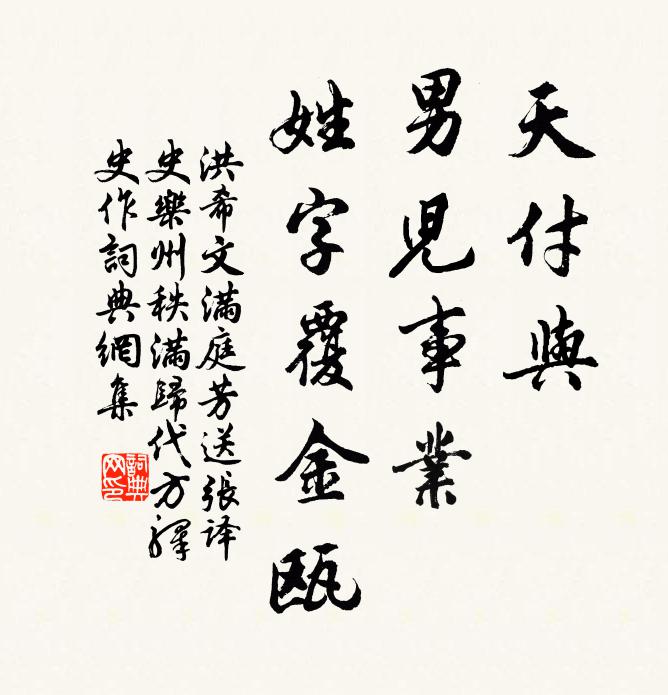 天付與
男児事業
姓字覆金甌
洪希文滿庭芳送張译
史樂州秩滿歸代方譯
史作詞典網集
詞典网印